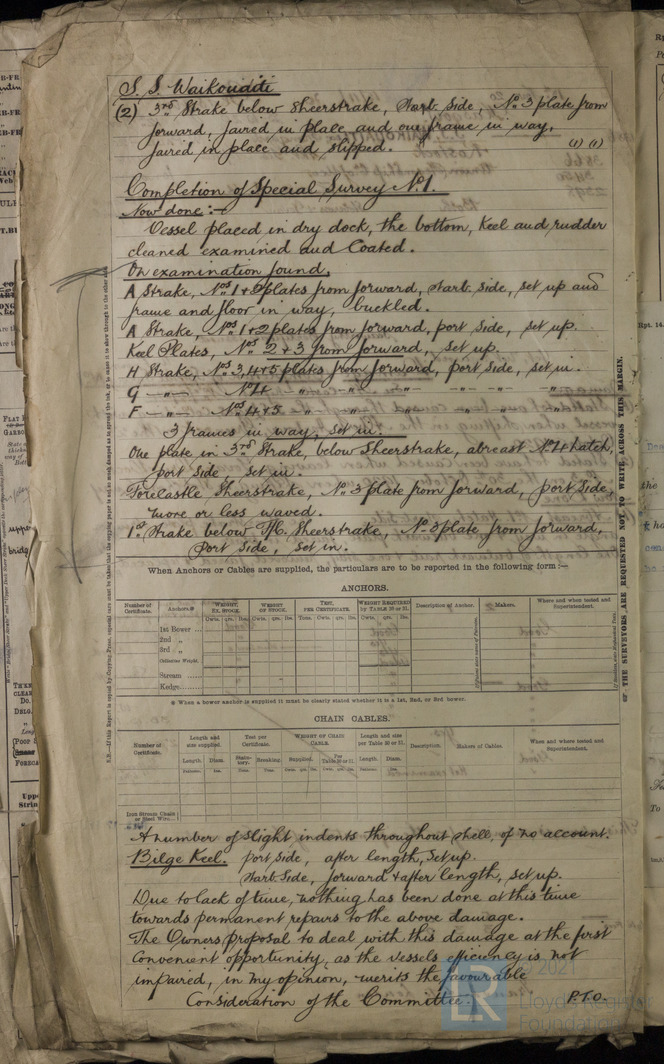 S. S. Waikouaiti
(2) 3rd Strake below Sheerstrake, Starb. Side, No. 3 plate from
forward, faired in place and one frame in way,
faired in place and slipped. (1) (1)
Completion of Special Survey No. 1.
Now done :-
Vessel placed in dry dock, the bottom, Keel and rudder
cleaned examined and Coated.
On examination found,
A Strake, Nos. 1 + 2 plates from forward, Starb. side, set up and
frame and floor in way, buckled.
A Strake, Nos. 1 + 2 plates from forward, port side, set up.
Keel Plates, Nos 2 + 3 from forward, set up.
H Strake, Nos 3, 4 + 5 plates from forward, port side, set in.
G -"- No 4 -"- -"- -"- -"- -"-
F -"- Nos 4 + 5 -"- -"- -"- -"- -"-
3 frames in way, set in.
One plate in 3rd Strake, below Sheerstrake, abreast No 4 hatch,
port side, set in.
Forecastle Sheerstrake, No. 3 plate from forward, port Side,
more or less waved.
1st Strake below Fk. Sheerstrake, No 3 plate from forward,
Port Side, set in.
When Anchors or Cables are supplied, the particulars are to be reported in the following form :—
ANCHORS.
Number of Certificate. Anchors.* WEIGHT, EX. STOCK. WEIGHT OF STOCK. TEST, PER CERTIFICATE. WEIGHT REQUIRED by TABLE 30 or 31. Description of Anchor. Makers. Where and when tested and Superintendent.
Cwts. qrs. lbs. Cwts. qrs. lbs. Tons. Cwts. qrs. lbs. Cwts. qrs. lbs.
1st Bower ...
2nd „
3rd „
Collective Weight.
Stream ......
Kedge.......
* When a bower anchor is supplied it must be clearly stated whether it is a 1st, 2nd, or 3rd bower.
CHAIN CABLES.
Number of Certificate. Length and size supplied. Test per Certificate. WEIGHT OF CHAIN CABLE. Length and size per Table 30 or 31. Description. Makers of Cables. When and where tested and Superintendent.
Length. Diam. Statutory. Breaking. Supplied. Per Table 30 or 31. Length. Diam.
Iron Stream Chain or Steel Wire...
A number of slight indents throughout shell, of no account.
Bilge Keel. port side, after length, set up.
Starb. Side, forward + after length, set up.
Due to lack of time, nothing has been done at this time
towards permanent repairs to the above damage.
The Owners proposal to deal with this damage at the first
convenient opportunity, as the vessels efficiency is not
impaired, in my opinion, merits the favourable
Consideration of the Committee. P.T.O.
THE SURVEYORS ARE REQUESTED NOT TO WRITE ACROSS THIS MARGIN.
2021
LR
Lloyd's Register
Foundation